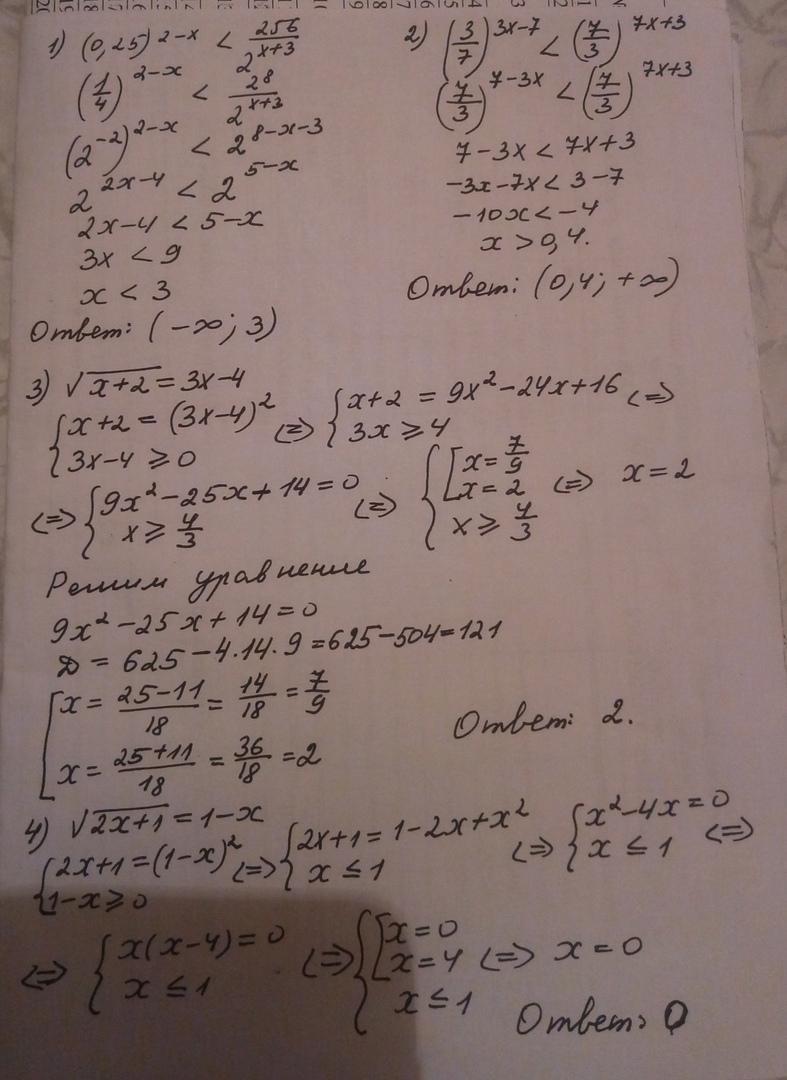 1) (0,25)^{2-x} < \frac{256}{2^{x+3}}
(\frac{1}{4})^{2-x} < \frac{2^8}{2^{x+3}}
(2^{-2})^{2-x} < 2^{8-x-3}
2^{2x-4} < 2^{5-x}
2x-4 < 5-x
3x < 9
x < 3
Ответ: (-∞; 3)
2) (\frac{3}{7})^{3x-7} < (\frac{7}{3})^{7x+3}
(\frac{7}{3})^{7-3x} < (\frac{7}{3})^{7x+3}
7-3x < 7x+3
-3x-7x < 3-7
-10x < -4
x > 0,4.
Ответ: (0,4; +∞)
3) √(x+2) = 3x-4
{ x+2 = (3x-4)^2 <=> { x+2 = 9x^2-24x+16 <=>
3x-4 ≥ 0 3x ≥ 4
<=> { 9x^2-25x+14=0 <=> { [ x=\frac{7}{9} x=2 <=> x=2
x ≥ \frac{4}{3} x ≥ \frac{4}{3}
Решим уравнение
9x^2-25x+14=0
D = 625-4·14·9=625-504=121
[ x = \frac{25-11}{18} = \frac{14}{18} = \frac{7}{9}
x = \frac{25+11}{18} = \frac{36}{18} = 2
Ответ: 2.
4) √(2x+1) = 1-x
{ 2x+1=(1-x)^2 <=> { 2x+1=1-2x+x^2 <=> { x^2-4x=0 <=>
1-x ≥ 0 x ≤ 1 x ≤ 1
<=> { x(x-4)=0 <=> { [ x=0 x=4 <=> x=0
x ≤ 1 x ≤ 1
Ответ: 0